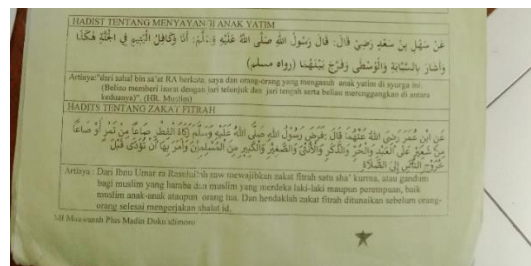 HADIST TENTANG MENYAYANGI ANAK YATIM
عَنْ سَهْلِ بْنِ سَعْدٍ رَضِيَ قَالَ: قَالَ رَسُوْلُ اللهِ صَلَّى اللهُ عَلَيْهِ وَسَلَّمَ: أَنَا وَكَافِلُ الْيَتِيْمِ فِي الْجَنَّةِ هَكَذَا
وَأَشَارَ بِالسَّبَّابَةِ وَالْوُسْطَى وَفَرَّجَ بَيْنَهُمَا (رواه مسلم)
Artinya:"dari sahal bin sa'at RA berkata, saya dan orang-orang yang mengasuh anak yatim di syurga ini.
(Beliau memberi isarat dengan jari telunjuk dan jari tengah serta beliau merenggangkan di antara
keduanya)". (HR. Muslim)
HADITS TENTANG ZAKAT FITRAH
عَنِ ابْنِ عُمَرَ رَضِيَ اللهُ عَنْهُمَا قَالَ فَرَضَ رَسُوْلُ اللهِ صَلَّى اللهُ عَلَيْهِ وَسَلَّمَ زَكَاةَ الْفِطْرِ صَاعًا مِنْ تَمْرٍ أَوْ صَاعًا
مِنْ شَعِيْرٍ عَلَى الْعَبْدِ وَالْحُرِّ وَالذَّكَرِ وَالْأُنْثَى وَالصَّغِيْرِ وَالْكَبِيْرِ مِنَ الْمُسْلِمِيْنَ وَأَمَرَ بِهَا أَنْ تُؤَدَّى قَبْلَ
خُرُوْجِ النَّاسِ إِلَى الصَّلَاةِ
Artinya : Dari Ibnu Umar ra Rasulullah saw mewajibkan zakat fitrah satu sha' kurma, atau gandum
bagi muslim yang hamba dan muslim yang merdeka laki-laki maupun perempuan, baik
muslim anak-anak ataupun orang tua. Dan hendaklah zakat fitrah ditunaikan sebelum orang-
orang selesai mengerjakan shalat id.
MI Plus Madin